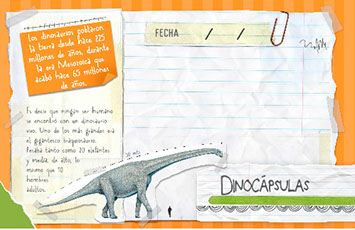 Los dinosaurios poblaron
la tierra desde hace 225
millones de años, durante
la era Mesozoica que
acabó hace 65 millones
de años.
FECHA / /
Es decir que ningún ser humano
se encontró con un dinosaurio
vivo. Uno de los más grandes era
el gigantesco
Pesaba tanto como 20 elefantes
y medía de alto, lo
mismo que 10
hombres
adultos.
DINOCÁPSULAS